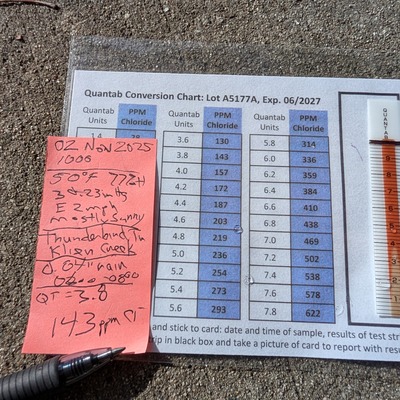 Quantab Conversion Chart: Lot A5177A, Exp. 06/2027
Quantab Units PPM Chloride
1.4 28
Quantab Units PPM Chloride
3.6 130
3.8 143
4.0 157
4.2 172
4.4 187
4.6 203
4.8 219
5.0 236
5.2 254
5.4 273
5.6 293
Quantab Units PPM Chloride
5.8 314
6.0 336
6.2 359
6.4 384
6.6 410
6.8 438
7.0 469
7.2 502
7.4 538
7.6 578
7.8 622
and stick to card: date and time of sample, results of test str
rip in black box and take a picture of card to report with resu
02 Nov 2025
1000
50°F 77%H
E 2 mph
mostly sunny
Thunderbird Tn
Klien Creek
0.04" rain
QT = 3.8
143 ppm Cl-
QUANTAB